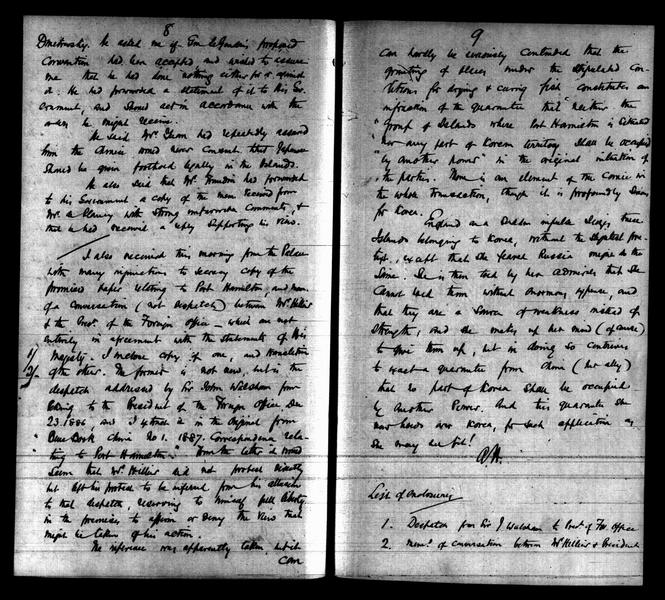 8
Dmitrevsky. He asked me if Gen LeGendre's proposed
Convention had been accepted and wished to assure
me that he had done nothing either for or against
it. He had forwarded a statement of it to his Gov-
ernment, and should act in accordance with the
orders he might receive.
He said Mr. Chom had repeatedly assured
him the Corea would never consent that Japanese
should be given foothold legally in the Islands.
He also said that Mr. had forwarded
to his Government a copy of the memo received from
Mr. with strong comments, &
that he had received a reply supporting his views.
I also received this morning from the Palace
with many injunctions to secrecy copy of the
promised paper relating to Port Hamilton, and memo
of a conversation (not despatch) between Mr. Hillier
& the Prest. of the Foreign Office – which are not
entirely in agreement with the statements of His
Majesty. I enclose copy of one, and translation
1/
2/
of the other. The former is not new, but is the
despatch addressed by Sir John Walsham from
Peking to the President of the Foreign Office Dec
23. 1886, and I extract it in the original from
"Blue Book China No 1. 1887. Correspondence rela-
ting to Port Hamilton". From the latter it would
seem that Mr. Hillier did not protest directly
but left his protest to be inferred from his allusion
to that despatch, reserving to himself full liberty
in the premises to affirm or deny the view that
might be taken of his action.
The inference was apparently taken, but it
can
9
can hardly be seriously contended that the
granting of places under the stipulated con-
ditions for drying & curing fish constitutes an
infraction of the guarantee that "neither the
"Group of Islands where Port Hamilton is situated
"nor any part of Korean territory shall be occupied
"by another power" in the original intention of
the parties. There is an element of the Comic in
the whole transaction, though it is profoundly serious
for Korea.
England on a sudden impulse seizes three
Islands belonging to Korea, without the slightest pre-
text, except that she feared Russia might do the
same. She is then told by her admirals that she
cannot hold them without enormous expense, and
that they are a source of weakness instead of
strength, and she makes up her mind (of course)
to give them up, but in doing so contrives
to exact a guarantee from China (her ally)
that no part of Korea shall be occupied
by Another Power. And this guarantee she
now holds over Korea, for such application as
she may see fit!
A. H.
List of enclosures
1. Despatch from Sir J. Walsham to Prest. of For. Office
2. Memo. of conversation between Mr. Hillier & President